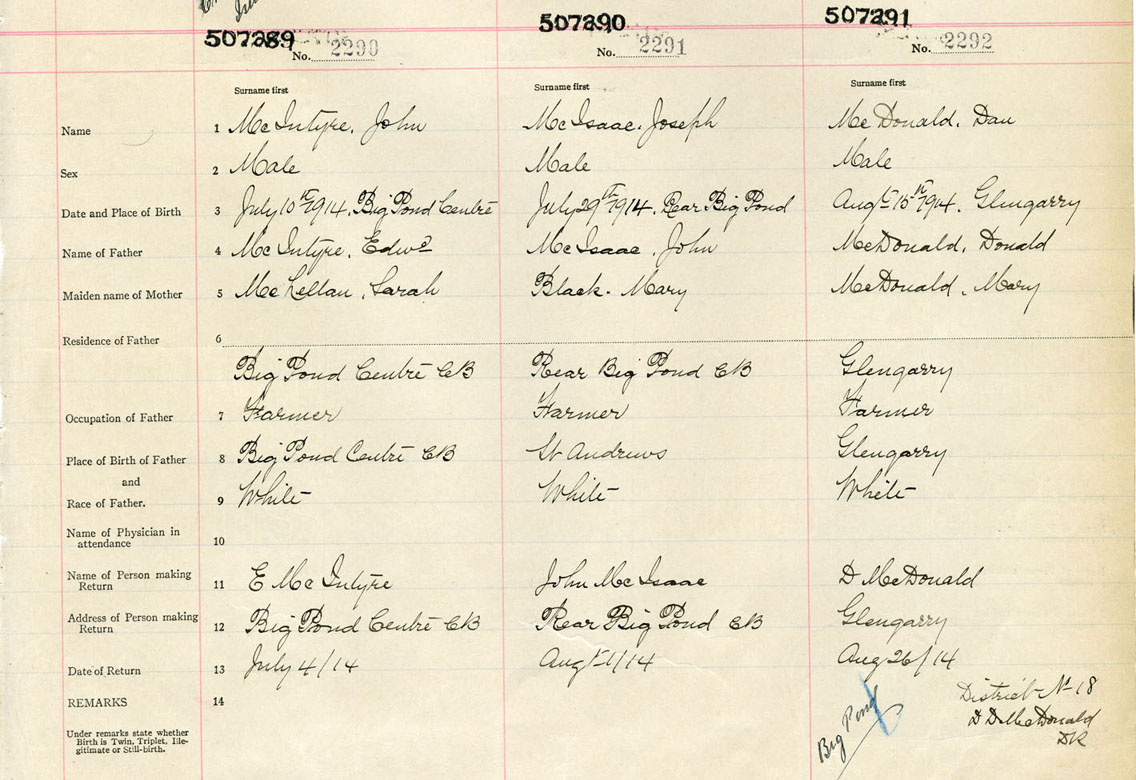 507289
507290
507291
No. 2290
No. 2291
No. 2292
Surname first
Surname first
Surname first
Name 1 McIntyre, John
McIsaac, Joseph
McDonald, Dan
Sex 2 Male
Male
Male
Date and Place of Birth 3 July 10th 1914. Big Pond Centre
July 29th 1914. Rear Big Pond
Augt 15th 1914. Glengarry
Name of Father 4 McIntyre, Edwd
McIsaac, John
McDonald, Donald
Maiden name of Mother 5 McLellan, Sarah
Black. Mary
McDonald, Mary
Residence of Father 6
Big Pond Centre CB
Rear Big Pond CB
Glengarry
Occupation of Father 7 Farmer
Farmer
Farmer
Place of Birth of Father 8 Big Pond Centre CB
St Andrews
Glengarry
and
Race of Father. 9 White
White
White
Name of Physician in
attendance 10
Name of Person making
Return 11 E McIntyre
John McIsaac
D McDonald
Address of Person making
Return 12 Big Pond Centre CB
Rear Big Pond CB
Glengarry
Date of Return 13 July 4/14
Augt 1/14
Aug 26/14
REMARKS 14
Under remarks state whether
Birth is Twin, Triplet, Ille-
gitimate or Still-birth.
Big Pond
District No 18
D D McDonald
DR